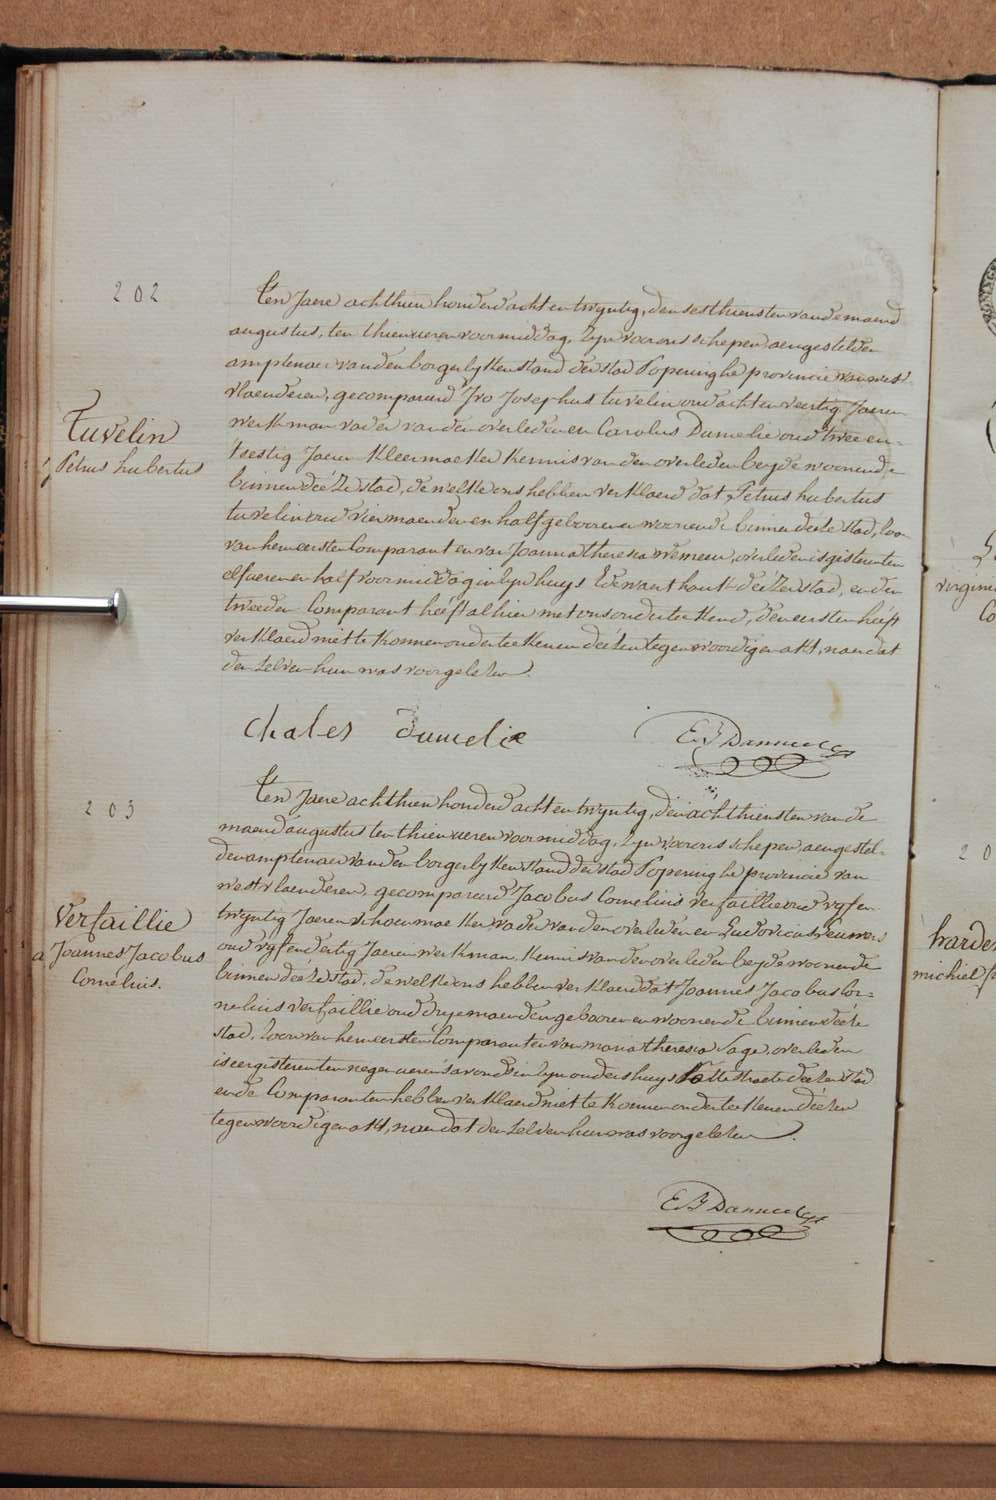 202
Tuvelin
Petrus hubertus
Ten Jaere achthien honderd acht en twijntig, den sesthiensten van de maend
augustus, ten thien ueren voormiddag, zyn voor ons schepen, aengestelden
amptenaer van den borgerlyken stand der stad Poperinghe provincie van west-
vlaenderen, gecompareerd Ivo Josephus tuvelin oud acht en veertig Jaeren
werkman vader van den overledenen en Carolus Dumelie oud twee en-
tsestig Jaeren kleermaeker kennis van den overleden beyde woonende
binnen deéze stad, de welke ons hebben verklaerd dat, Petrus hubertus
tuvelin oud vier maenden en half gebooren en woonende binnen deéze stad, zoon
van hem eersten Comparant en van Joanna theresia Wemeur, overleden is gisteren ten
elf ueren en half voormiddag in zyn huys Edewaarthoek deézer stad, en den
tweeden Comparant heéft alhier met ons onderteekend, den eersten heéft
verklaerd niet te konnen onderteekenen deézen tegenwoordigen akt, naer dat
den zelven hun was voorgelezen.
Chales Dumelie
E. J Danneel
203
Verfaillie
Joannes Jacobus
Cornelius.
Ten Jaere achthien honderd acht en twijntig, den achthiensten van de
maend augustus ten thien ueren voormiddag, zyn voor ons schepen, aengestel-
den amptenaer van den borgerlyken stand der stad Poperinghe provincie van
westvlaenderen, gecompareerd Jacobus Cornelius verfaillie oud vyf en
twijntig Jaeren schoenmaeker vader van den overledenen en Ludovicus reuwers
oud vyf en dertig Jaeren werkman, kennis van den overleden beyde woonende
binnen deéze stad, de welke ons hebben verklaerd dat Joannes Jacobus Cor-
nelius verfaillie oud drye maenden gebooren en woonende binnen deéze
stad, zoon van hem eersten Comparant en van maria theresia Sage, overleden
is eergisteren ten negen ueren savonds in zyn ouders huys straete deézer stad
en de Comparanten hebben verklaerd niet te konnen onderteekenen deézen
tegenwoordigen akt, naer dat den zelven hun was voorgelezen.
E J Danneel
virgini
Co
20
harde
michiel